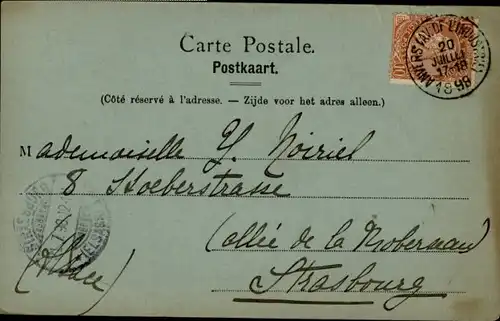 Carte Postale.
Postkaart.
(Côté réservé à l'adresse. — Zijde voor het adres alleen.)
ANVERS
20
JUILLET
17-18
1898
Mademoiselle Y. Noiriel
8 Stoeberstrasse
(allée de la Robersau)
Strasbourg
(Alsace)